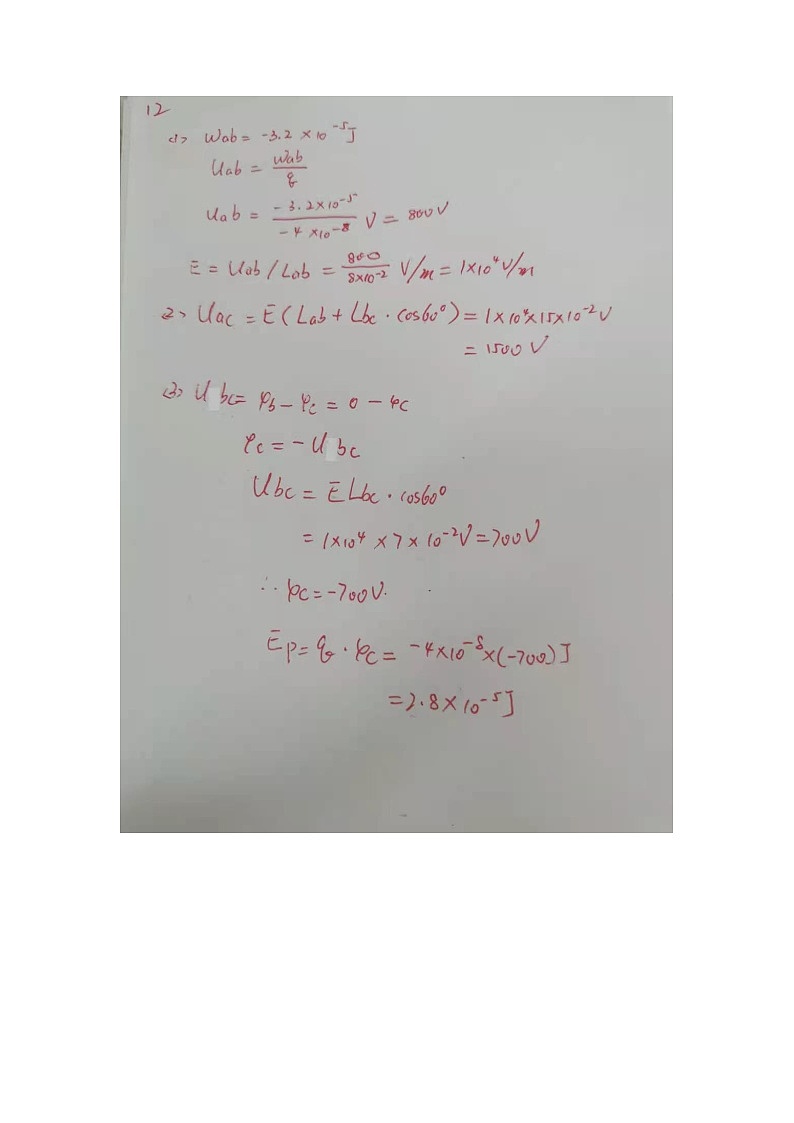 12
(1) Wab = -3.2 × 10⁻⁵J
Uab = Wab/q
Uab = (-3.2×10⁻⁵)/(-4×10⁻⁸) V = 800V
E = Uab/Lab = 800/(8×10⁻²) V/m = 1×10⁴V/m
(2) Uac = E(Lab + Lbc · cos60°) = 1×10⁴×15×10⁻²V
= 1500 V
(3) Ubc = φb - φc = 0 - φc
φc = - Ubc
Ubc = ELbc · cos60°
= 1×10⁴ × 7 × 10⁻²V = 700V
∴ φc = -700V.
Ep = q · φc = -4×10⁻⁸×(-700)J
= 2.8×10⁻⁵J